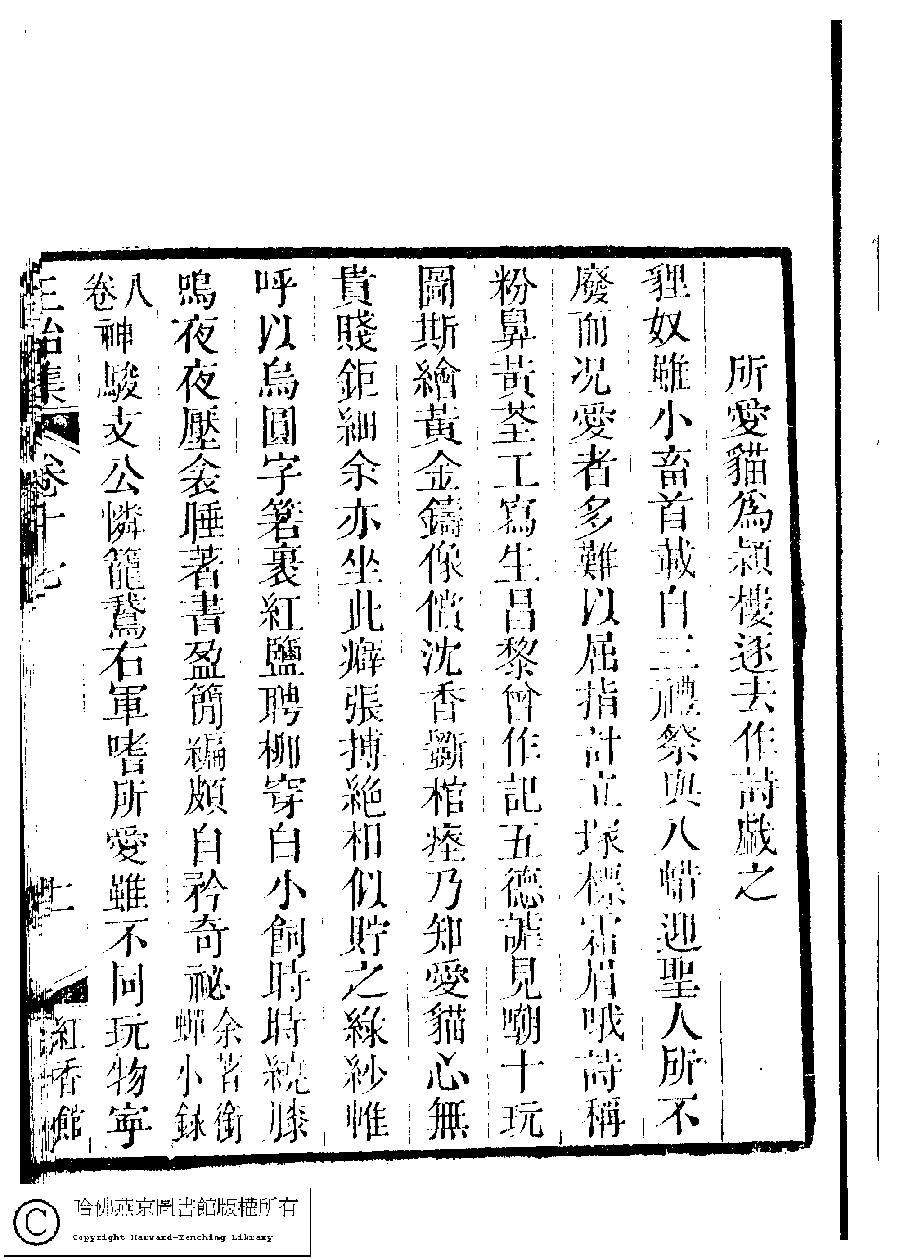 所愛貓為潁樓逐去作詩戲之
貍奴雖小畜首載自三禮祭與八蜡迎聖人所不
廢而况愛者多難以屈指計立塚標霜眉哦詩稱
粉鼻黃荃工寫生昌黎曾作記五德謔見嘲十玩
圖斯繪黃金鑄像償沈香斲棺瘞乃知愛貓心無
貴賤鉅細余亦坐此癖張搏絕相似貯之綠紗帷
呼以烏圓字箬裹紅鹽聘柳穿白小飼時時繞膝
鳴夜夜壓衾睡著書盈簡編頗自矜奇祕余著銜蟬小錄
八卷神駿支公憐籠鵞右軍嗜所愛雖不同玩物寧
卷十七
紅香館
哈佛燕京圖書館版權所有
Copyright Harvard-Yenching Library